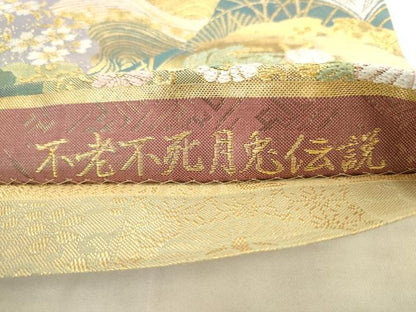 不老不死月兎伝説